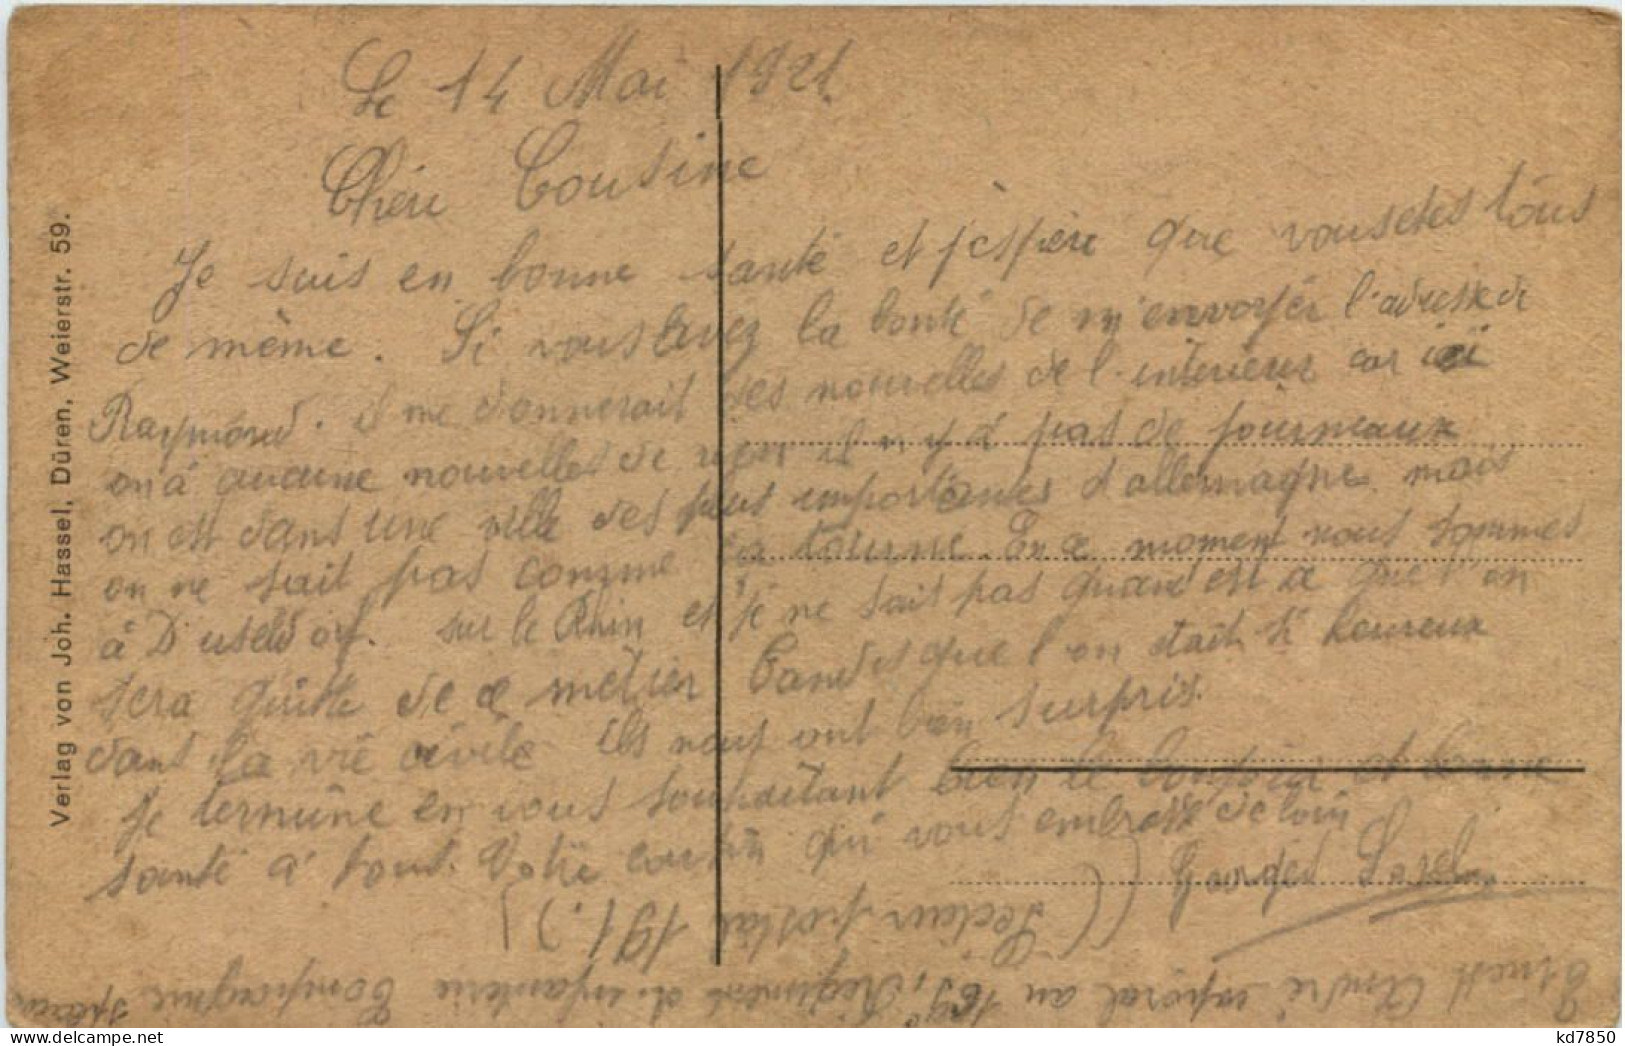 Le 14 Mai 1921.
Chère Cousine
Je suis en bonne santé et j'espère que vousetes tous
de même. Si vous avez la bonté de m'envoyér l'adresse de
Raymond. il me donnerait des nouvelles de l'intérieur car ici
on à aucune nouvelles de rien il n'y à pas de journeaux
on est dans une ville des plus importantes d'allemagne mais
on ne sait pas comme ça tourne. En ce moment nous sommes
à Duseldorf. sur le Rhin et je ne sait pas quand est ce que l'on
sera quitte de ce métier tandisque l'on était si heureux
dans la vie civile ils nous ont bien surpris.
Je termine en vous souhaitant bien le bonjour et bonne
santé à tous. Votre cousin qui vous embrasse de loin
Georges
(Secteur postal 191.)
Ernest André caporal au 169e Régiment d'infanterie Compagnie
Verlag von Joh. Hassel, Düren, Weierstr. 59.
kd7850